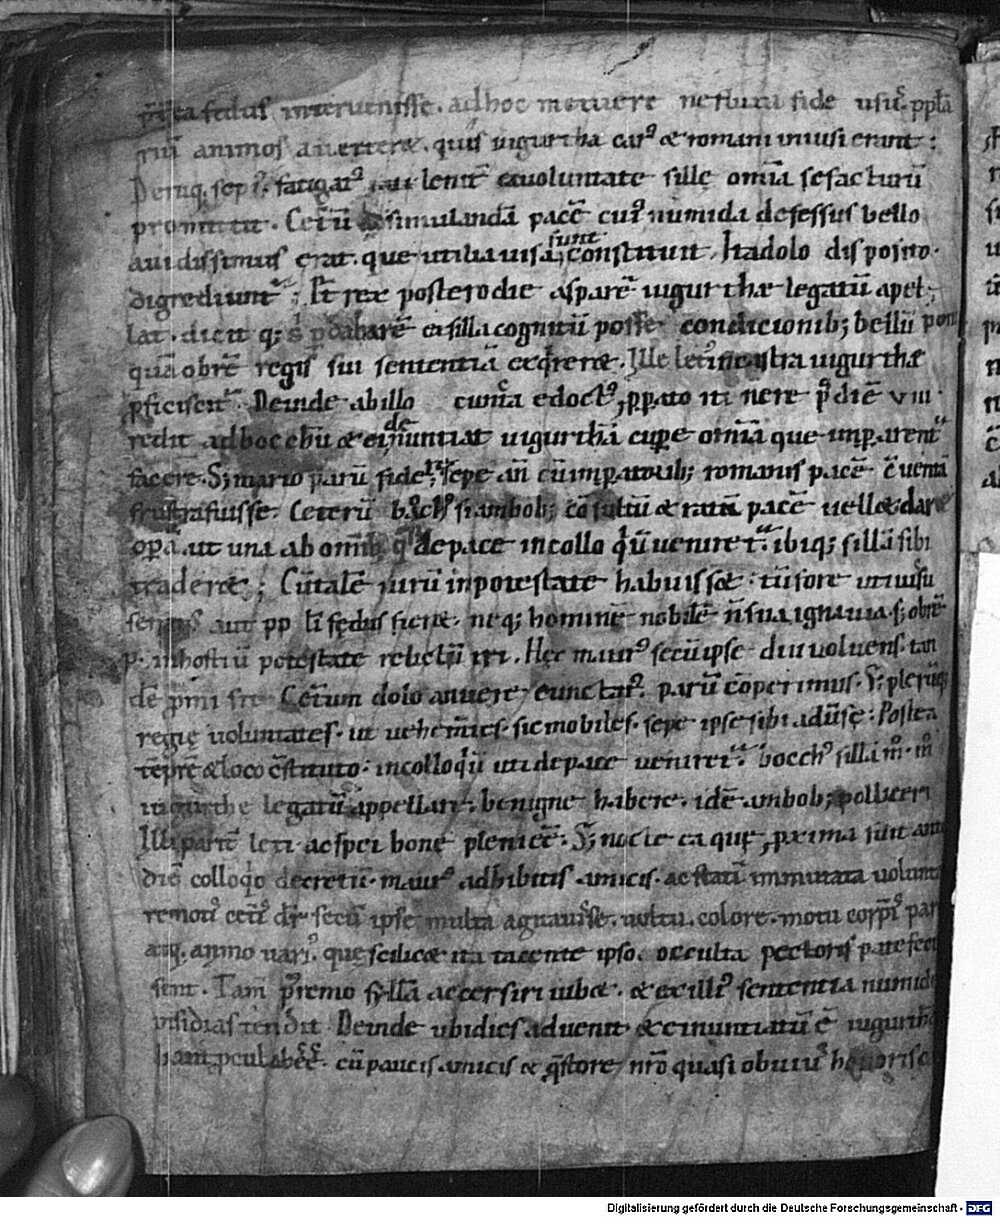 p̄tea fedus interuenisse. ad hoc metuere ne fluxa fide usus ppl̄a
riū animos auerteret. quis iugurtha carus & romani inuisi erant:
Deniq. sepius fatigatus lenitur ex uoluntate sillę omīa se facturū
promittit. Ceterū simulandā pacē cuius numida defessus bello
auidissimus erat. que utilia uisa sunt constituit. Ita dolo disposito.
digrediuntur; At rex postero die asparē iugurthæ legatū apel
lat. dicit q; s; p dabarē ex silla cognitū posse condicionib; bellū poni
quā obrē regis sui sententiā exqreret. Ille letus in castra iugurthæ
pficiscitur. Deinde ab illo cuncta edoctus, pperato itinere p diē VIII.
redit ad bocchū & ei denuntiat iugurthā cupere omīa que imperarentur
facere. S; mario parū fidere, sepe an cū imperatorib; romanis pacē cuentā
frustra fuisse. Ceterū bocchus si ambob; cōsultū & ratā pacē uell& dare
operā ut una ab omib; q̄si de pace in colloquiū ueniretur. ibiq; sillā sibi
traderet; Cū talē uirū in potestate habuisset. tū fore uti iussu
senatus aut pp l̄i fędus fieret. neq; hominē nobilē n̄ sua ignauia s; obrē
p. in hostiū potestate relictū iri. Hęc maurus secū ipse diu uoluens. tan
dē pmisit Ceterum dolo an uere cunctatus. parū cōperimus. S; plerūq;
regię uoluntates. ut uehemtes. sic mobiles. sepe ipse sibi aduersę: Postea
tēpre & loco cstituto: in colloquiū uti de pace ueniretur. bocchus sillā m̊. m̊
iugurthe legatū appellare. benigne habere. idē ambob; polliceri
Illi pariter leti ac spei bone pleni eē. S; nocte ea quę pxima fuit ante
diē colloqio decretū. maurus adhibitis amicis. ac statī immutata uolunta
remotis ceteris dr̄ secū ipse multa agitauisse. uultu. colore. motu corpis pari
atq. animo uarius. quę scilicet ita tacente ipso. occulta pectoris patefeci
sent. Tam p̄stremo syllā accersiri iubet. & ex illius sententia numidę
insidias tendit. Deinde ubi dies aduenit & ei nuntiatū ē iugurthā
haut pcul abeē. cū paucis amicis & q̄store nr̄o quasi obuius honoris ca
Digitalisierung gefördert durch die Deutsche Forschungsgemeinschaft - DFG